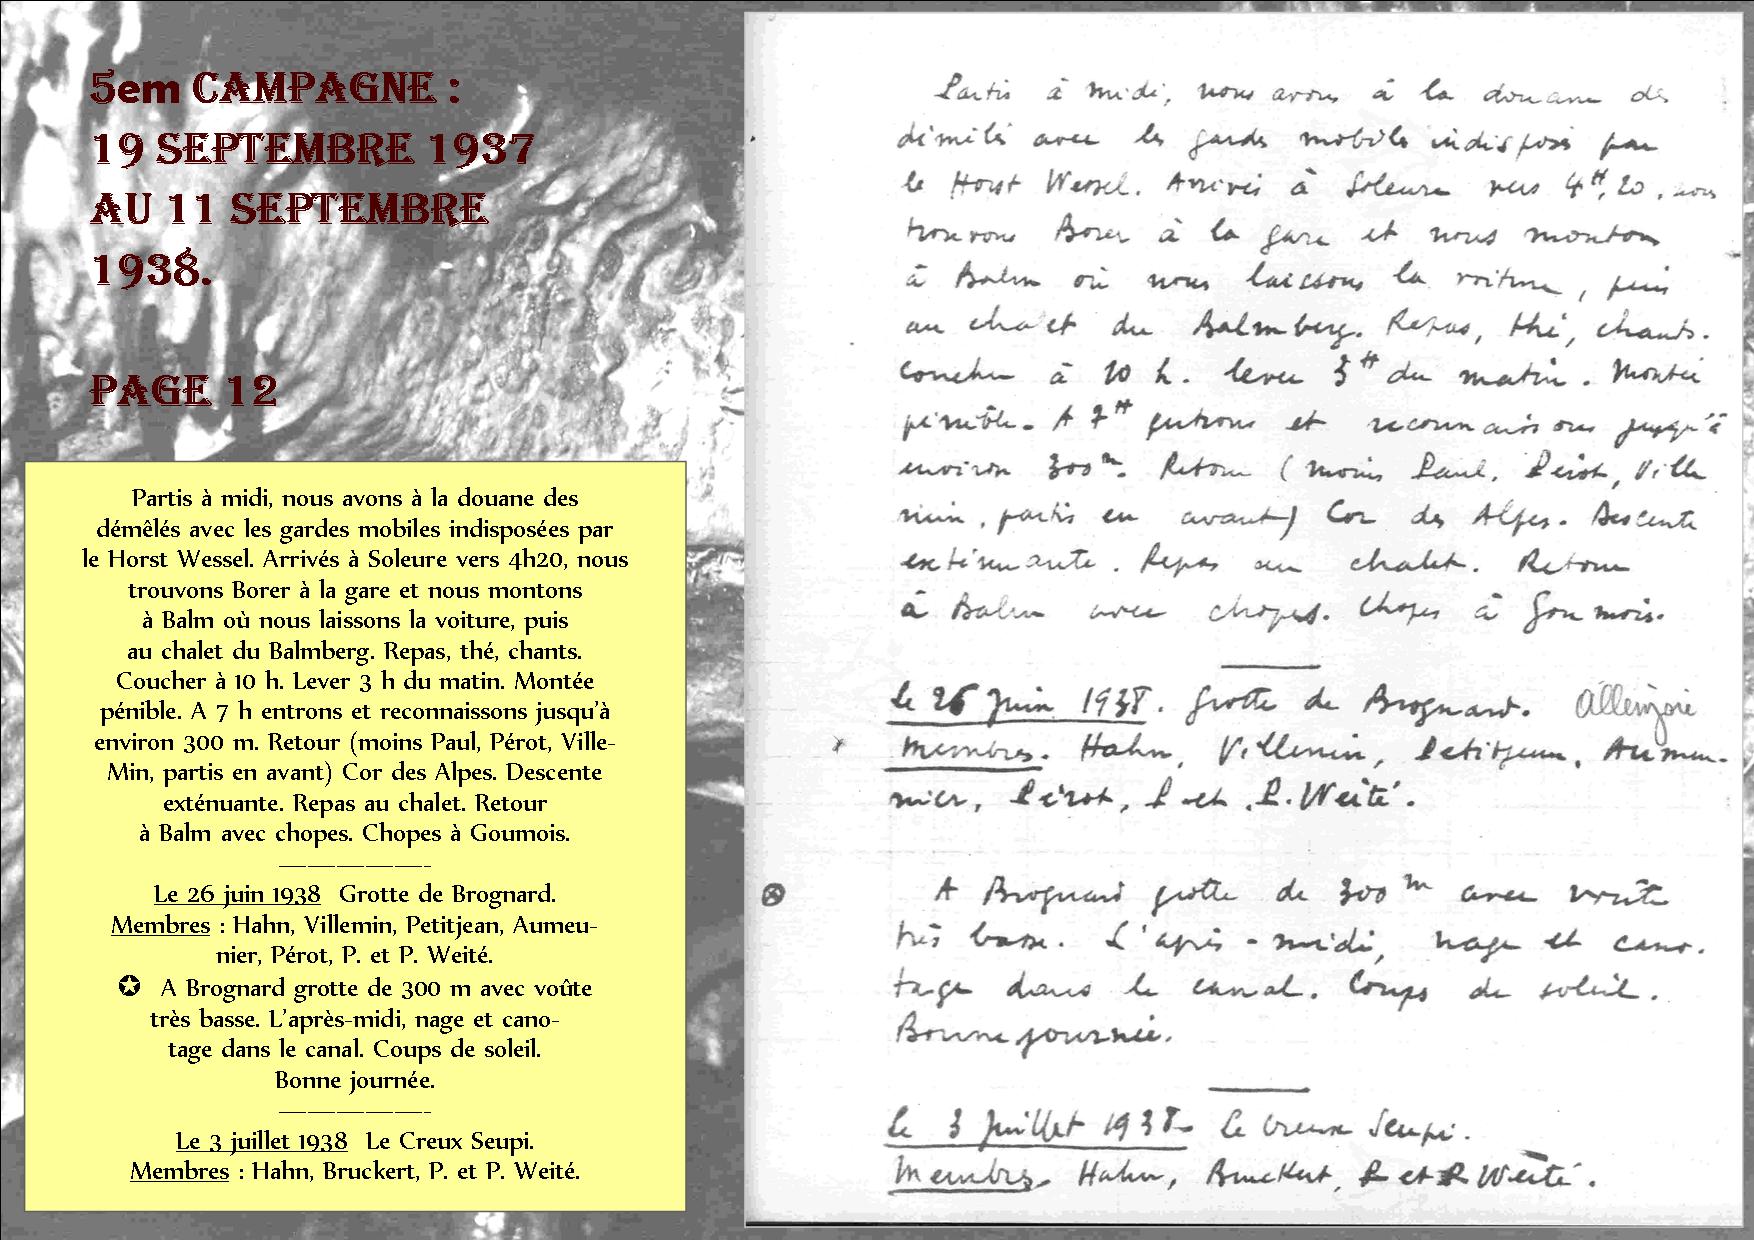 5em CAMPAGNE :
19 SEPTEMBRE 1937
AU 11 SEPTEMBRE
1938.
PAGE 12
Partis à midi, nous avons à la douane des
démêlés avec les gardes mobiles indisposées par
le Horst Wessel. Arrivés à Soleure vers 4h20, nous
trouvons Borer à la gare et nous montons
à Balm où nous laissons la voiture, puis
au chalet du Balmberg. Repas, thé, chants.
Coucher à 10 h. Lever 3 h du matin. Montée
pénible. A 7 h entrons et reconnaissons jusqu'à
environ 300 m. Retour (moins Paul, Pérot, Ville-
Min, partis en avant) Cor des Alpes. Descente
exténuante. Repas au chalet. Retour
à Balm avec chopes. Chopes à Goumois.
Le 26 juin 1938 Grotte de Brognard.
Membres : Hahn, Villemin, Petitjean, Aumeu-
nier, Pérot, P. et P. Weité.
✪ A Brognard grotte de 300 m avec voûte
très basse. L'après-midi, nage et cano-
tage dans le canal. Coups de soleil.
Bonne journée.
Le 3 juillet 1938 Le Creux Seupi.
Membres : Hahn, Bruckert, P. et P. Weité.
Partis à midi, nous avons à la douane des
démêlés avec les gardes mobiles indisposés par
le Horst Wessel. Arrivés à Soleure vers 4H,20, nous
trouvons Borer à la gare et nous montons
à Balm où nous laissons la voiture, puis
au chalet du Balmberg. Repas, thé, chants.
Coucher à 10 h. lever 3H du matin. Montée
pénible. A 7H entrons et reconnaissons jusqu'à
environ 300m. Retour (moins Paul, Pérot, Ville
min, partis en avant) Cor des Alpes. Descente
exténuante. Repas au chalet. Retour
à Balm avec chopes. Chopes à Goumois.
le 26 Juin 1938. Grotte de Brognard. Allenjoie
Membres. Hahn, Villemin, Petitjean, Aumeu-
nier, Pérot, P. et P. Weité.
A Brognard grotte de 300m avec voûte
très basse. L'après-midi, nage et cano-
tage dans le canal. Coups de soleil.
Bonne journée.
le 3 Juillet 1938. Le Creux Seupi.
Membres. Hahn, Bruckert, P et P Weité.